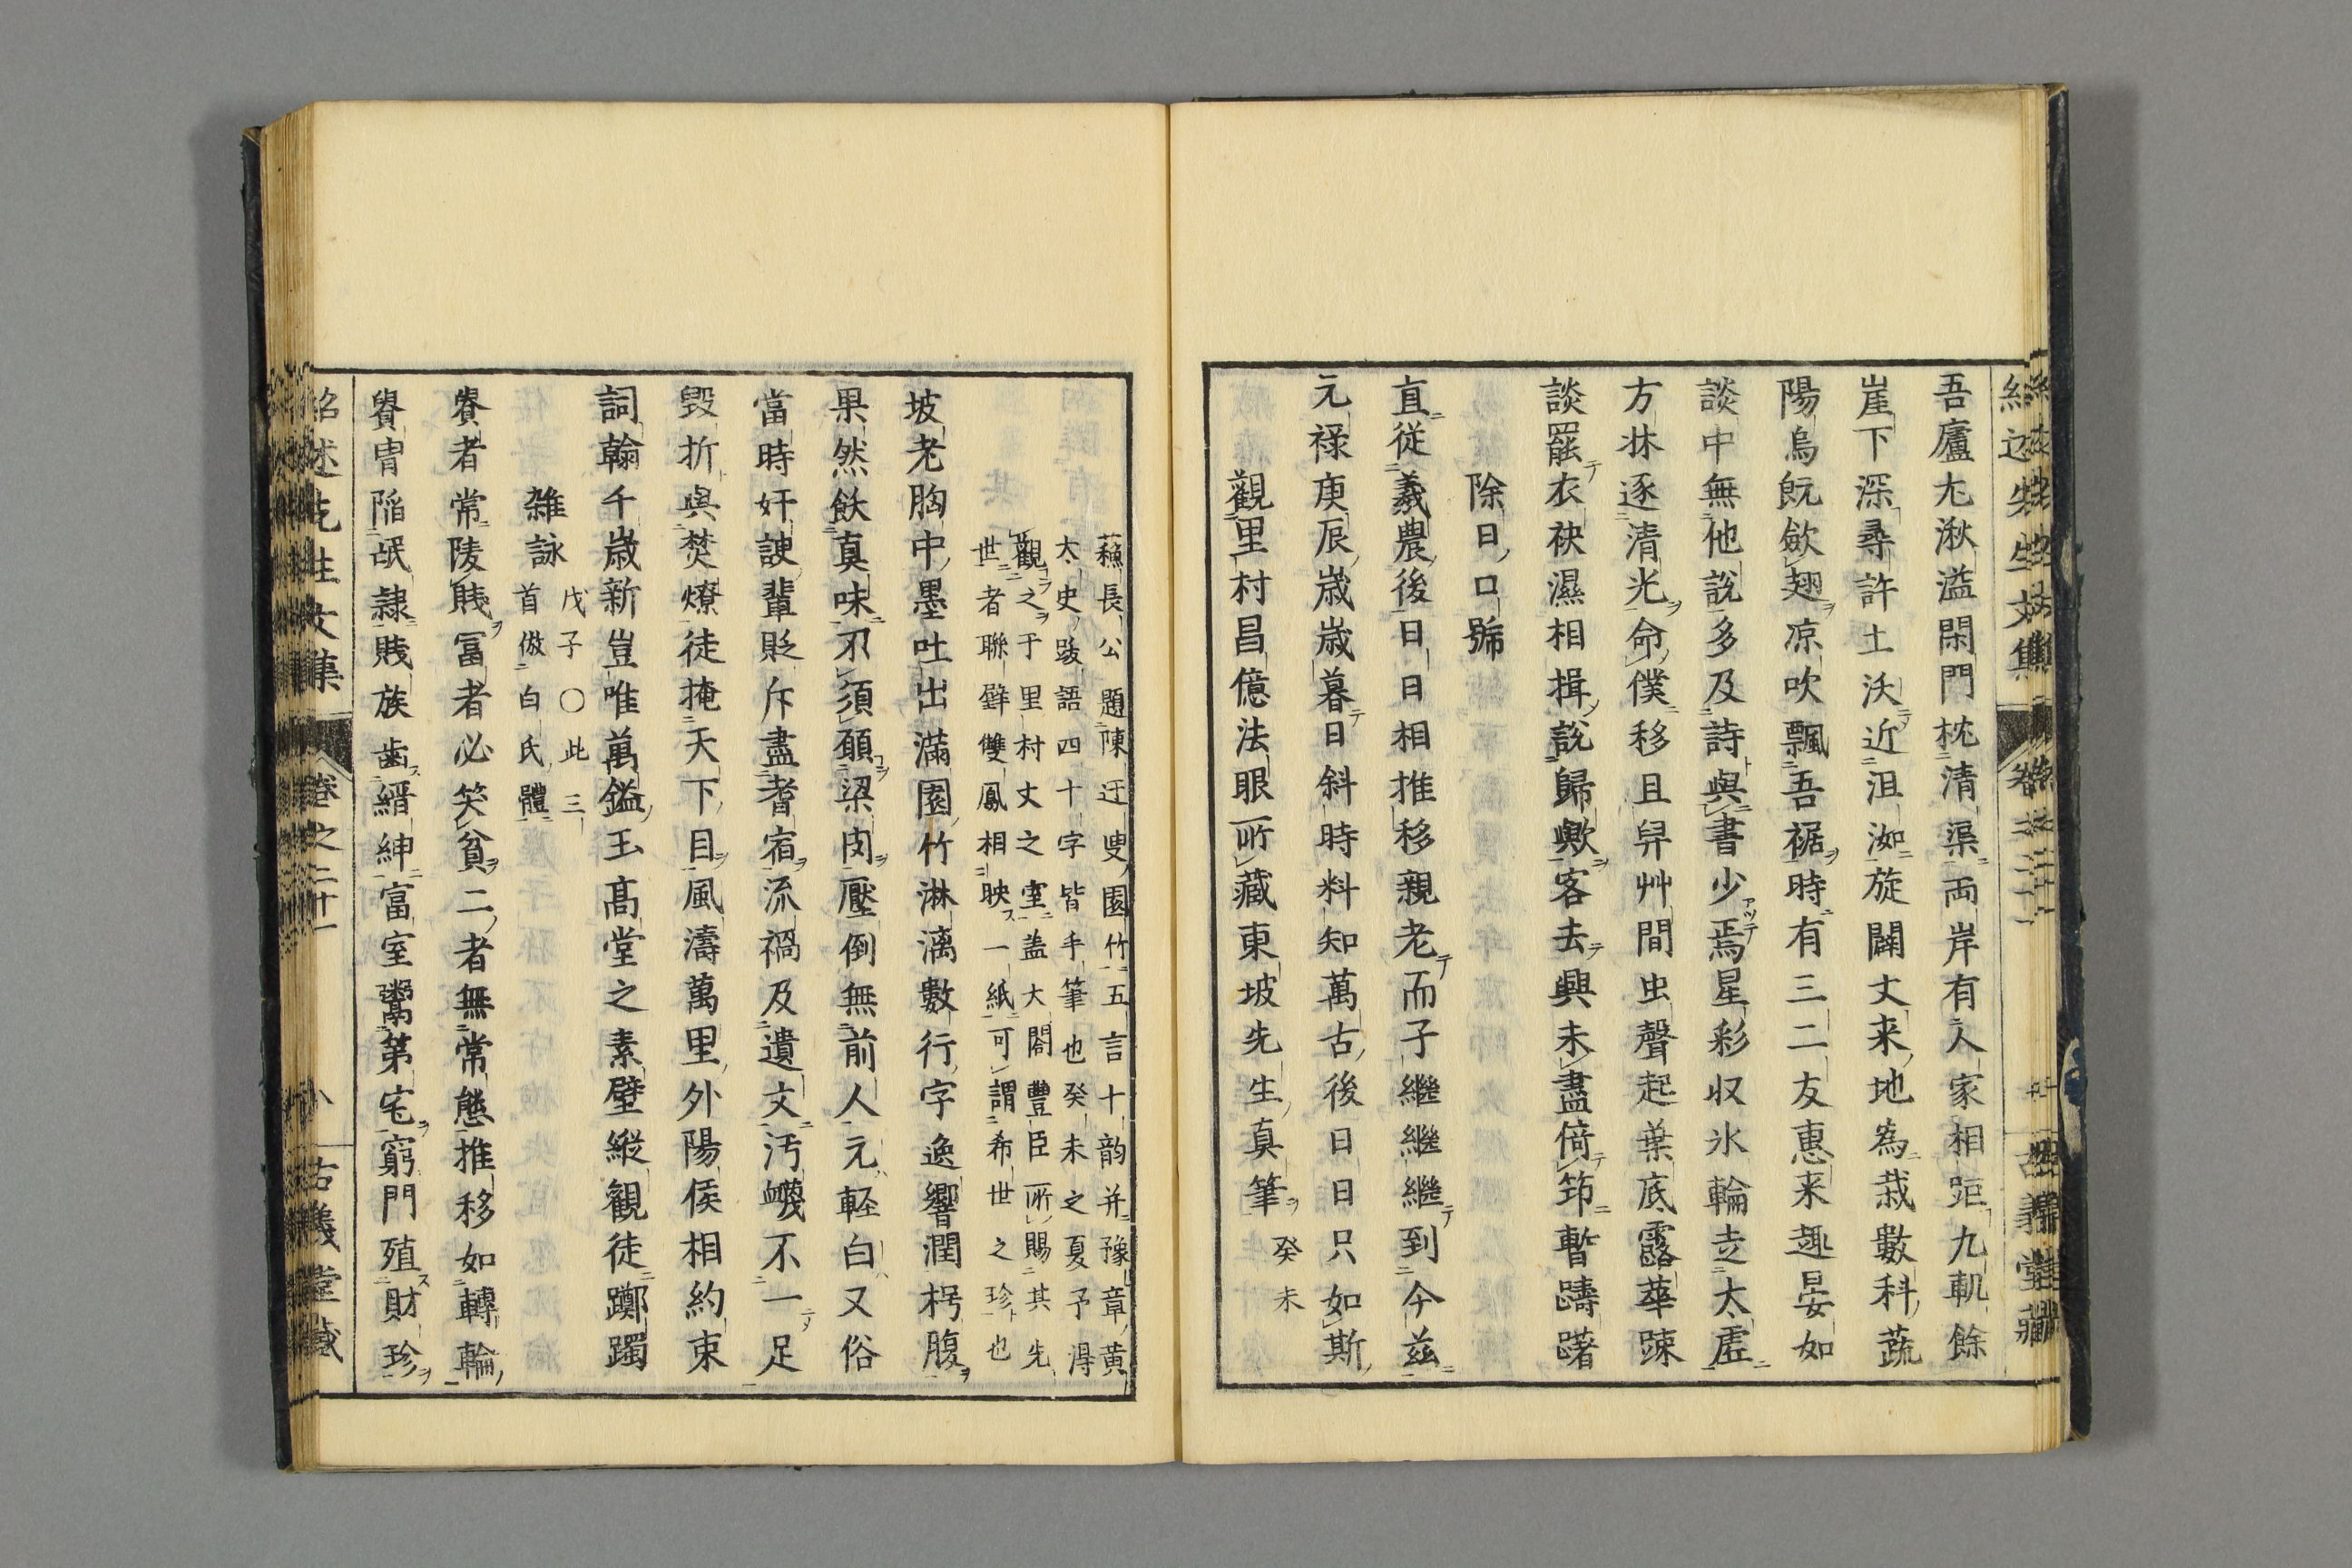 吾廬尢湫溢閑門枕清渠両岸有人家相距九軌餘
崖下深尋許土沃近沮洳旋闢丈来地為栽數科蔬
陽烏既歛翅凉吹飄吾裾時有三二友惠来趣晏如
談中無他説多及詩與書少焉星彩収氷輪走太虚
方牀逐清光命僕移且舁艸間虫聲起葉底露華踈
談罷衣袂濕相揖説歸歟客去興未盡倚笻暫躊躇
除日口號
直従羲農後日日相推移親老而子繼繼繼到今茲
元禄庚辰歳歳暮日斜時料知萬古後日日只如斯
觀里村昌億法眼所藏東坡先生真筆 癸未
蘓長公題陳迂叟園竹五言十韵并豫章黄
太史跋語四十字皆手筆也癸未之夏予得
觀之于里村丈之室盖大閤豐臣所賜其先
世者聯璧雙鳳相映一紙可謂希世之珍也
坡老胸中墨吐出滿園竹淋漓數行字逸響潤枵腹
果然飫真味不須願梁肉壓倒無前人元軽白又俗
當時奸諛輩貶斥盡耆宿流禍及遺文汚衊不一足
毀折與焚燎徒掩天下目風濤萬里外陽侯相約束
詞翰千歳新豈唯萬鎰玉高堂之素壁縱観徒躑躅
雑詠 戊子〇此三
首倣白氏體
貴者常陵賤冨者必笑貧二者無常態推移如轉輪
貴冑陥氓隷賤族齒縉紳富室鬻第宅窮門殖財珍
紹述先生文集
卷之二十一
古義堂藏